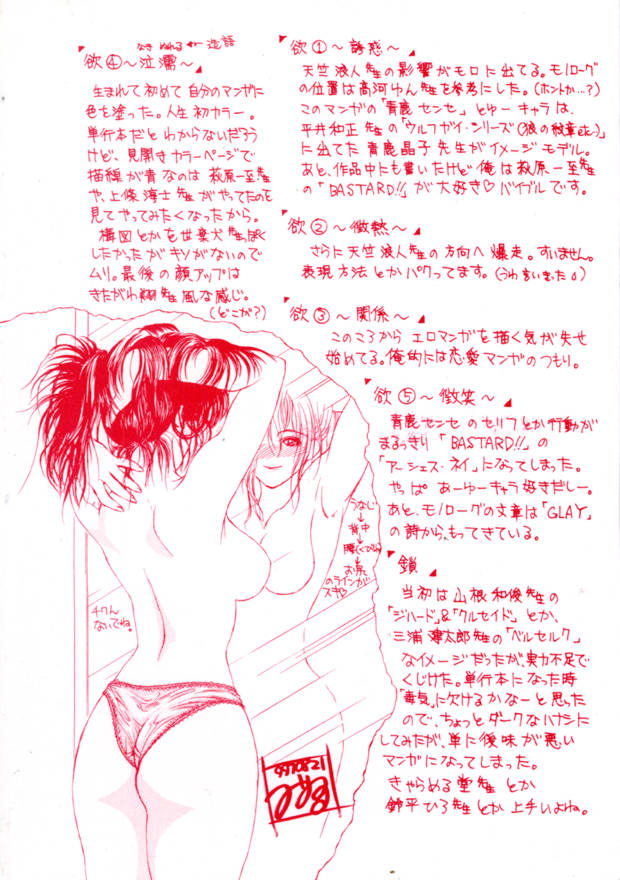 欲①～誘惑～
天竺浪人先生の影響がモロに出てる。モノローグ
の位置は高河ゆん先生を参考にした。(ホントか…？)
このマンガの「青鹿センセ」とゆーキャラは、
平井和正先生の「ウルフガイ・シリーズ(狼の紋章etc…)」
に出てた青鹿晶子先生がイメージモデル。
あと、作品中にも書いたけど俺は萩原一至先生
の「BASTARD!!」が大好き♡バイブルです。
欲②～微熱～
さらに天竺浪人先生の方向へ爆走。すいません。
表現方法とかパクってます。(うわ言いきった)
欲③～関係～
このころからエロマンガを描く気が失せ
始めてる。俺的には恋愛マンガのつもり。
なき ぬれる ← 造語
欲④～泣濡～
生まれて初めて自分のマンガに
色を塗った。人生初カラー。
単行本だとわからないだろう
けど、見開きカラーページで
描線が青なのは萩原一至先生
や、上條淳士先生がやってたのを
見てやってみたくなったから。
構図とかを世棄犬先生っぽく
したかったがキソがないので
ムリ。最後の顔アップは
きたがわ翔先生風な感じ。
(どこが？)
欲⑤～微笑～
青鹿センセのセリフとか行動が
まるっきり「BASTARD!!」の
「アーシェス・ネイ」になってしまった。
やっぱあーゆーキャラ好きだしー。
あと、モノローグの文章は「GLAY」
の詩から、もってきている。
鎖
当初は山根和俊先生の
「ジハード」&「クルセイド」とか、
三浦建太郎先生の「ベルセルク」
なイメージだったが、実力不足で
くじけた。単行本になった時
「毒気」に欠けるかなーと思った
ので、ちょっとダークなハナシに
してみたが、単に後味が悪い
マンガになってしまった。
きゃらめる堂先生とか
鈴平ひろ先生とか上手いよね。
うなじ
↓
背中
↓
腰(くびれ)
↓
お尻
のラインが
スキ♡
チクん
ないでね。
970821